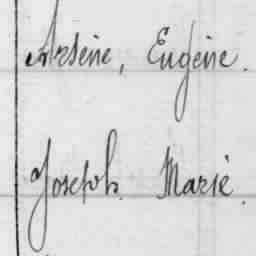 Arsène, Eugène.
Joseph. Marie.